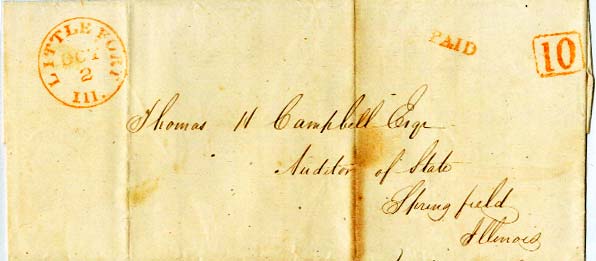 LITTLE FORT
OCT
2
Ill.
PAID
10
Thomas H Campbell Esqr
Auditor of State
Springfield
Illinois